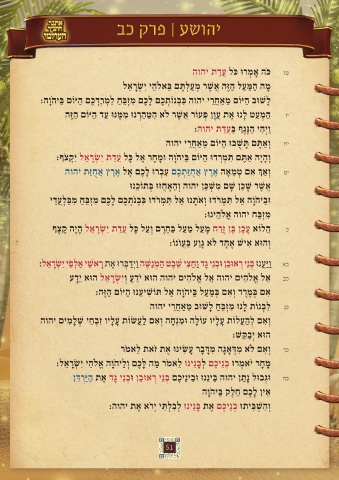 אתנך
הירומי
יהושע | פרק כב
טז כֹּה אָמְרוּ כֹּל עֲדַת יהוה
מָה הַמַּעַל הַזֶּה אֲשֶׁר מְעַלְתֶּם בֵּאלֹהֵי יִשְׂרָאֵל
לָשׁוּב הַיּוֹם מֵאַחֲרֵי יהוה בִּבְנוֹתְכֶם לָכֶם מִזְבֵּחַ לִמְרָדְכֶם הַיּוֹם בַּיהוָה:
יז הַמְעַט לָנוּ אֶת עֲוֹן פְּעוֹר אֲשֶׁר לֹא הִטַּהַרְנוּ מִמֶּנּוּ עַד הַיּוֹם הַזֶּה
וַיְהִי הַנֶּגֶף בַּעֲדַת יהוה:
יח וְאַתֶּם תָּשֻׁבוּ הַיּוֹם מֵאַחֲרֵי יהוה
וְהָיָה אַתֶּם תִּמְרְדוּ הַיּוֹם בַּיהוָה וּמָחָר אֶל כָּל עֲדַת יִשְׂרָאֵל יִקְצֹף:
יט וְאַךְ אִם טְמֵאָה אֶרֶץ אֲחֻזַּתְכֶם עִבְרוּ לָכֶם אֶל אֶרֶץ אֲחֻזַּת יהוה
אֲשֶׁר שָׁכַן שָׁם מִשְׁכַּן יהוה וְהֵאָחֲזוּ בְּתוֹכֵנוּ
וּבַיהוָה אַל תִּמְרֹדוּ וְאֹתָנוּ אַל תִּמְרֹדוּ בִּבְנֹתְכֶם לָכֶם מִזְבֵּחַ מִבַּלְעֲדֵי
מִזְבַּח יהוה אֱלֹהֵינוּ:
כ הֲלוֹא עָכָן בֶּן זֶרַח מָעַל מַעַל בַּחֵרֶם וְעַל כָּל עֲדַת יִשְׂרָאֵל הָיָה קָצֶף
וְהוּא אִישׁ אֶחָד לֹא גָוַע בַּעֲוֹנוֹ:
כא וַיַּעֲנוּ בְּנֵי רְאוּבֵן וּבְנֵי גָד וַחֲצִי שֵׁבֶט הַמְנַשֶּׁה וַיְדַבְּרוּ אֶת רָאשֵׁי אַלְפֵי יִשְׂרָאֵל:
כב אֵל אֱלֹהִים יהוה אֵל אֱלֹהִים יהוה הוּא יֹדֵעַ וְיִשְׂרָאֵל הוּא יֵדָע
אִם בְּמֶרֶד וְאִם בְּמַעַל בַּיהוָה אַל תּוֹשִׁיעֵנוּ הַיּוֹם הַזֶּה:
כג לִבְנוֹת לָנוּ מִזְבֵּחַ לָשׁוּב מֵאַחֲרֵי יהוה
וְאִם לְהַעֲלוֹת עָלָיו עוֹלָה וּמִנְחָה וְאִם לַעֲשׂוֹת עָלָיו זִבְחֵי שְׁלָמִים יהוה
הוּא יְבַקֵּשׁ:
כד וְאִם לֹא מִדְּאָגָה מִדָּבָר עָשִׂינוּ אֶת זֹאת לֵאמֹר
מָחָר יֹאמְרוּ בְנֵיכֶם לְבָנֵינוּ לֵאמֹר מַה לָּכֶם וְלַיהוָה אֱלֹהֵי יִשְׂרָאֵל:
כה וּגְבוּל נָתַן יהוה בֵּינֵנוּ וּבֵינֵיכֶם בְּנֵי רְאוּבֵן וּבְנֵי גָד אֶת הַיַּרְדֵּן
אֵין לָכֶם חֵלֶק בַּיהוָה
וְהִשְׁבִּיתוּ בְנֵיכֶם אֶת בָּנֵינוּ לְבִלְתִּי יְרֹא אֶת יהוה:
51